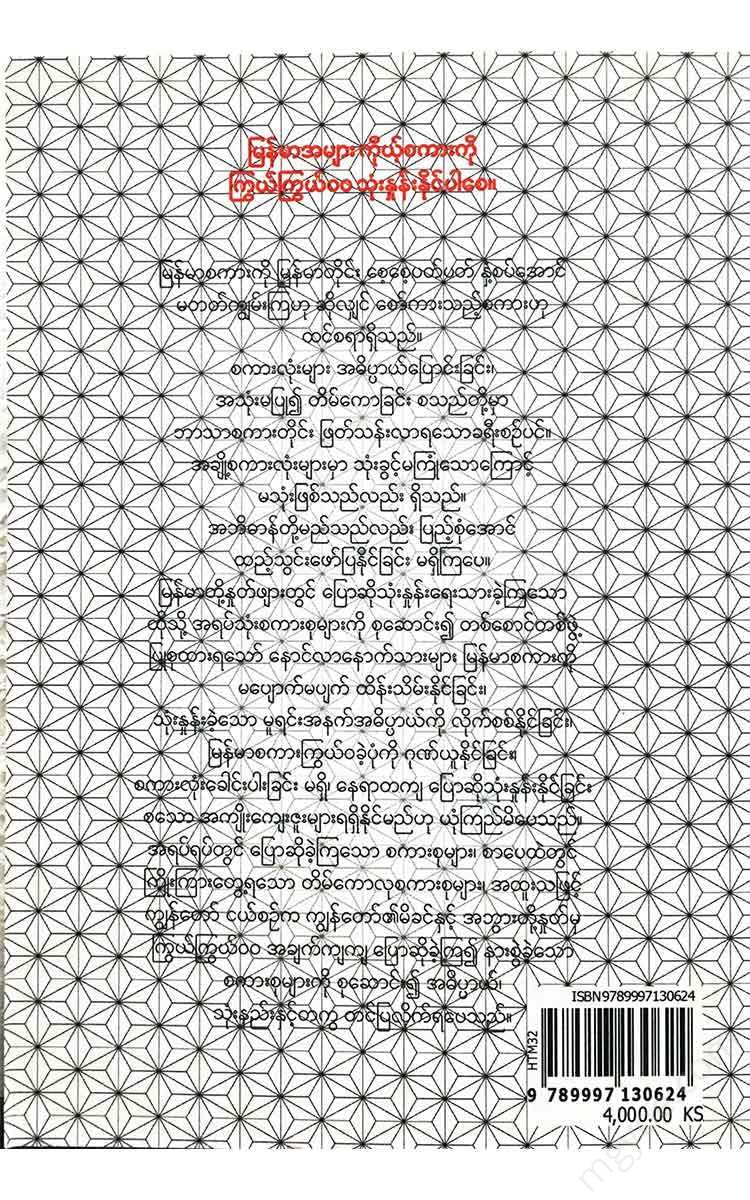 မြန်မာအများ ကိုယ့်စကားကို
ကြွယ်ကြွယ်ဝဝ သုံးနှုန်းနိုင်ပါစေ။
မြန်မာစကားကို မြန်မာတိုင်း စေ့စေ့ပတ်ပတ် နှံ့စပ်အောင်
မတတ်ကျွမ်းကြဟု ဆိုလျှင် စော်ကားသည့်စကားဟု
ထင်စရာရှိသည်။
စကားလုံးများ အဓိပ္ပာယ်ပြောင်းခြင်း၊
အသုံးမပြု၍ တိမ်ကောခြင်း စသည်တို့မှာ
ဘာသာစကားတိုင်း ဖြတ်သန်းလာရသောခရီးစဉ်ပင်။
အချို့စကားလုံးများမှာ သုံးခွင့်မကြုံသောကြောင့်
မသုံးဖြစ်သည်လည်း ရှိသည်။
အဘိဓာန်တို့မည်သည်လည်း ပြည့်စုံအောင်
ထည့်သွင်းဖော်ပြနိုင်ခြင်း မရှိကြပေ။
မြန်မာတို့နှုတ်ဖျားတွင် ပြောဆိုသုံးနှုန်းရေးသားခဲ့ကြသော
ထိုသို့ အရပ်သုံးစကားစုများကို စုဆောင်း၍ တစ်စောင်တစ်ဖွဲ့
ပြုစုထားရသော် နောင်လာနောက်သားများ မြန်မာစကားကို
မပျောက်မပျက် ထိန်းသိမ်းနိုင်ခြင်း၊
သုံးနှုန်းခဲ့သော မူရင်းအနက်အဓိပ္ပာယ်ကို လိုက်စစ်နိုင်ခြင်း၊
မြန်မာစကားကြွယ်ဝခဲ့ပုံကို ဂုဏ်ယူနိုင်ခြင်း၊
စကားလုံးခေါင်းပါးခြင်း မရှိ၊ နေရာတကျ ပြောဆိုသုံးနှုန်းနိုင်ခြင်း
စသော အကျိုးကျေးဇူးများရရှိနိုင်မည်ဟု ယုံကြည်မိပေသည်။
အရပ်ရပ်တွင် ပြောဆိုခဲ့ကြသော စကားစုများ၊ စာပေထဲတွင်
ကြိုးကြားတွေ့ရသော တိမ်ကောလုစကားစုများ၊ အထူးသဖြင့်
ကျွန်တော် ငယ်စဉ်က ကျွန်တော်၏မိခင်နှင့် အဘွားတို့နှုတ်မှ
ကြွယ်ကြွယ်ဝဝ အချက်ကျကျ ပြောဆိုခဲ့ကြ၍ နားစွဲခဲ့သော
စကားစုများကို စုဆောင်း၍ အဓိပ္ပာယ်၊
သုံးနည်းနှင့်တကွ တင်ပြလိုက်ရပေသည်။
ISBN9789997130624
HTM32
9 789997 130624
4,000.00 KS